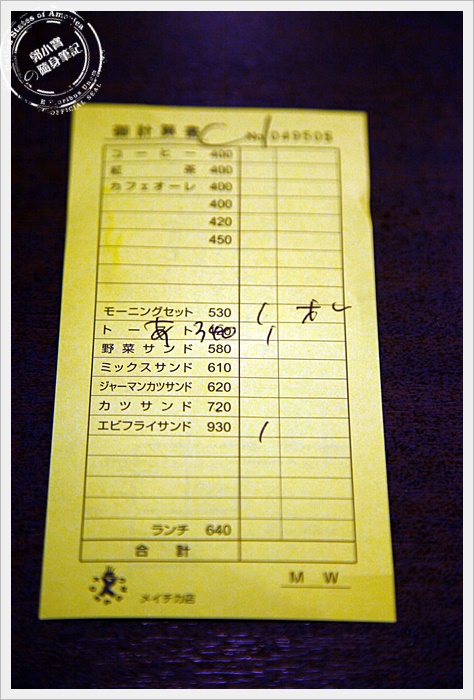 States of America
郭小寶
の隨身筆記
E Pluribus Unum
OFFICIAL SEAL
御計算書 C1 No 049505
コーヒー 400
紅茶 400
カフェオーレ 400
400
420
450
モーニングセット 530 1 ホ
トースト 420 340 1
野菜サンド 580
ミックスサンド 610
ジャーマンカツサンド 620
カツサンド 720
エビフライサンド 930 1
ランチ 640
合計
M W
メイチカ店